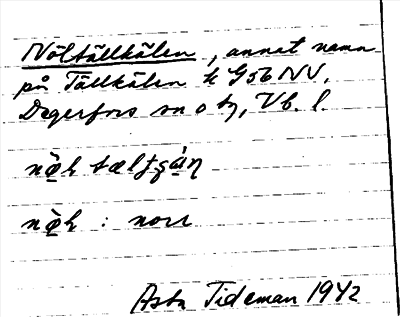 Nöltällkälen, annat namn
på Tällkälen k G56 NV.
Degerfors sn o tg, Vb. l.
: norr
Asta Tideman 1942